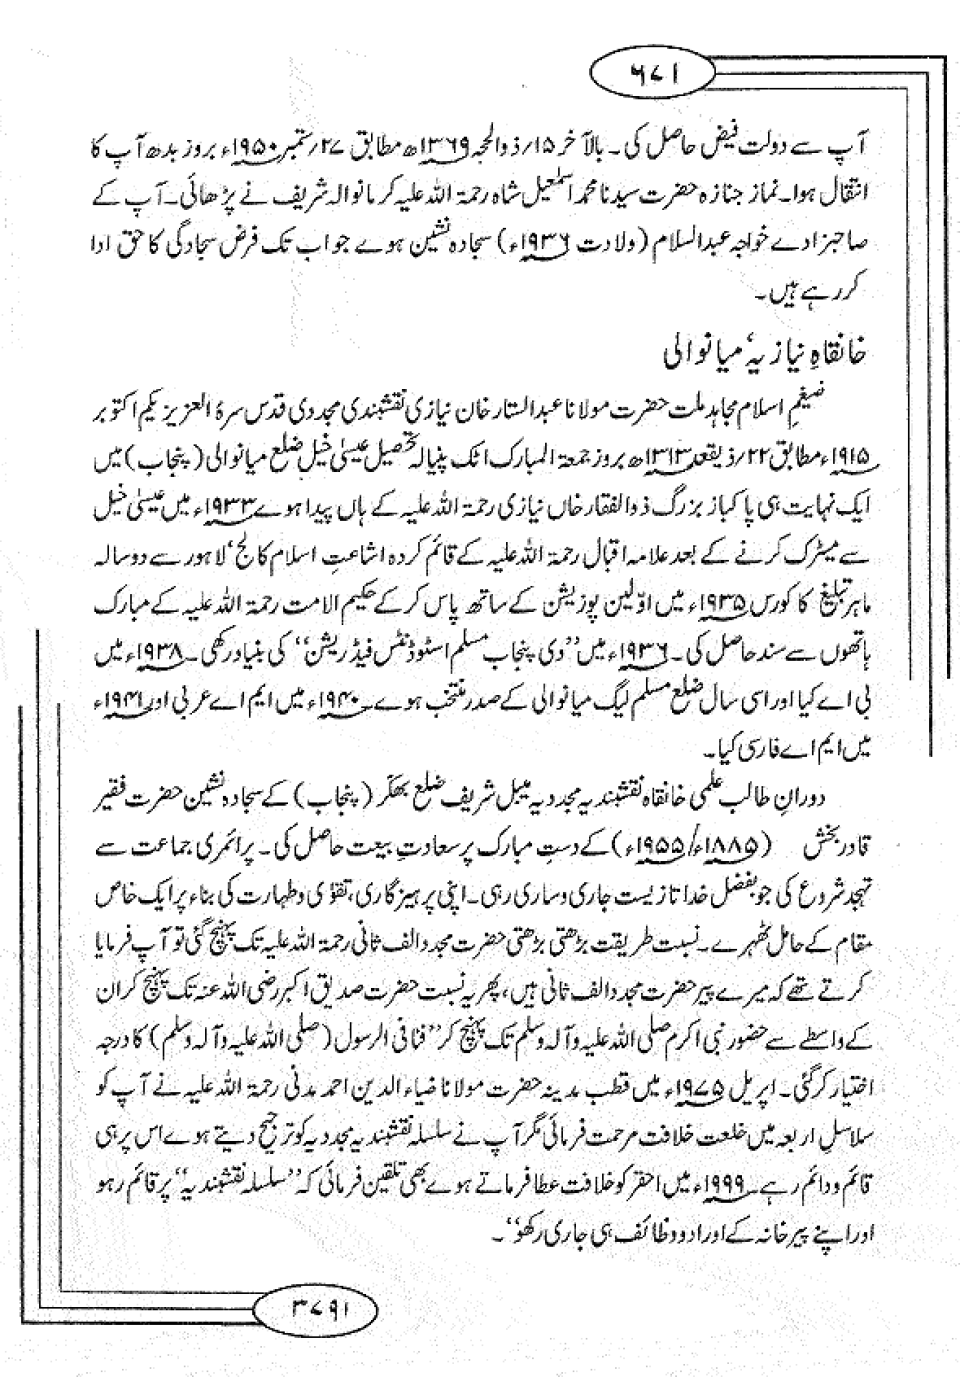 ۶۷۱
آپ سے دولت فیض حاصل کی۔ بالآخر ۱۵/ ذوالحجہ ۱۳۶۹ھ مطابق ۲۷/ ستمبر ۱۹۵۰ء بروز بدھ آپ کا
انتقال ہوا۔ نماز جنازہ حضرت سیدنا محمد اسمٰعیل شاہ رحمۃ اللہ علیہ کرمانوالہ شریف نے پڑھائی۔ آپ کے
صاحبزادے خواجہ عبدالسلام (ولادت ۱۹۳۶ء) سجادہ نشین ہوے جو اب تک فرض سجادگی کا حق ادا
کر رہے ہیں۔
خانقاہِ نیازیہ، میانوالی
ضیغمِ اسلام مجاہد ملت حضرت مولانا عبدالستار خان نیازی نقشبندی مجددی قدس سرہٗ العزیز یکم اکتوبر
۱۹۱۵ء مطابق ۲۲/ ذیقعد ۱۳۱۳ھ بروز جمعۃ المبارک اٹک پنیالہ تحصیل عیسیٰ خیل ضلع میانوالی (پنجاب) میں
ایک نہایت ہی پاکباز بزرگ ذوالفقار خاں نیازی رحمۃ اللہ علیہ کے ہاں پیدا ہوے ۱۹۳۳ء میں عیسیٰ خیل
سے میٹرک کرنے کے بعد علامہ اقبال رحمۃ اللہ علیہ کے قائم کردہ اشاعتِ اسلام کالج، لاہور سے دو سالہ
ماہر تبلیغ کا کورس ۱۹۳۵ء میں اوّلین پوزیشن کے ساتھ پاس کرکے حکیم الامت رحمۃ اللہ علیہ کے مبارک
ہاتھوں سے سند حاصل کی۔ ۱۹۳۶ء میں ”دی پنجاب مسلم اسٹوڈنٹس فیڈریشن“ کی بنیاد رکھی۔ ۱۹۳۸ء میں
بی اے کیا اور اسی سال ضلع مسلم لیگ میانوالی کے صدر منتخب ہوے۔ ۱۹۴۰ء میں ایم اے عربی اور ۱۹۴۱ء
میں ایم اے فارسی کیا۔
دورانِ طالب علمی خانقاہ نقشبندیہ مجددیہ میبل شریف ضلع بھکر (پنجاب) کے سجادہ نشین حضرت فقیر
قادر بخش (۱۸۸۵ء/۱۹۵۵ء) کے دستِ مبارک پر سعادتِ بیعت حاصل کی۔ پرائمری جماعت سے
تہجد شروع کی جو بفضل خدا تا زیست جاری و ساری رہی۔ اپنی پرہیزگاری، تقوٰی و طہارت کی بناء پر ایک خاص
مقام کے حامل ٹھہرے۔ نسبت طریقت بڑھتی بڑھتی حضرت مجدد الف ثانی رحمۃ اللہ علیہ تک پہنچ گئی تو آپ فرمایا
کرتے تھے کہ میرے پیر حضرت مجدد الف ثانی ہیں، پھر یہ نسبت حضرت صدیق اکبر رضی اللہ عنہ تک پہنچ کر ان
کے واسطے سے حضور نبی اکرم صلی اللہ علیہ وآلہ وسلم تک پہنچ کر ”فنافی الرسول (صلی اللہ علیہ وآلہ وسلم) کا درجہ
اختیار کر گئی۔ اپریل ۱۹۷۵ء میں قطب مدینہ حضرت مولانا ضیاء الدین احمد مدنی رحمۃ اللہ علیہ نے آپ کو
سلاسل اربعہ میں خلعت خلافت مرحمت فرمائی مگر آپ نے سلسلہ نقشبندیہ مجددیہ کو ترجیح دیتے ہوے اس پر ہی
قائم و دائم رہے۔ ۱۹۹۹ء میں احقر کو خلافت عطا فرماتے ہوے بھی تلقین فرمائی کہ ”سلسلہ نقشبندیہ“ پر قائم رہو
اور اپنے پیر خانہ کے اوراد و وظائف ہی جاری رکھو“۔
۳۷۹۱